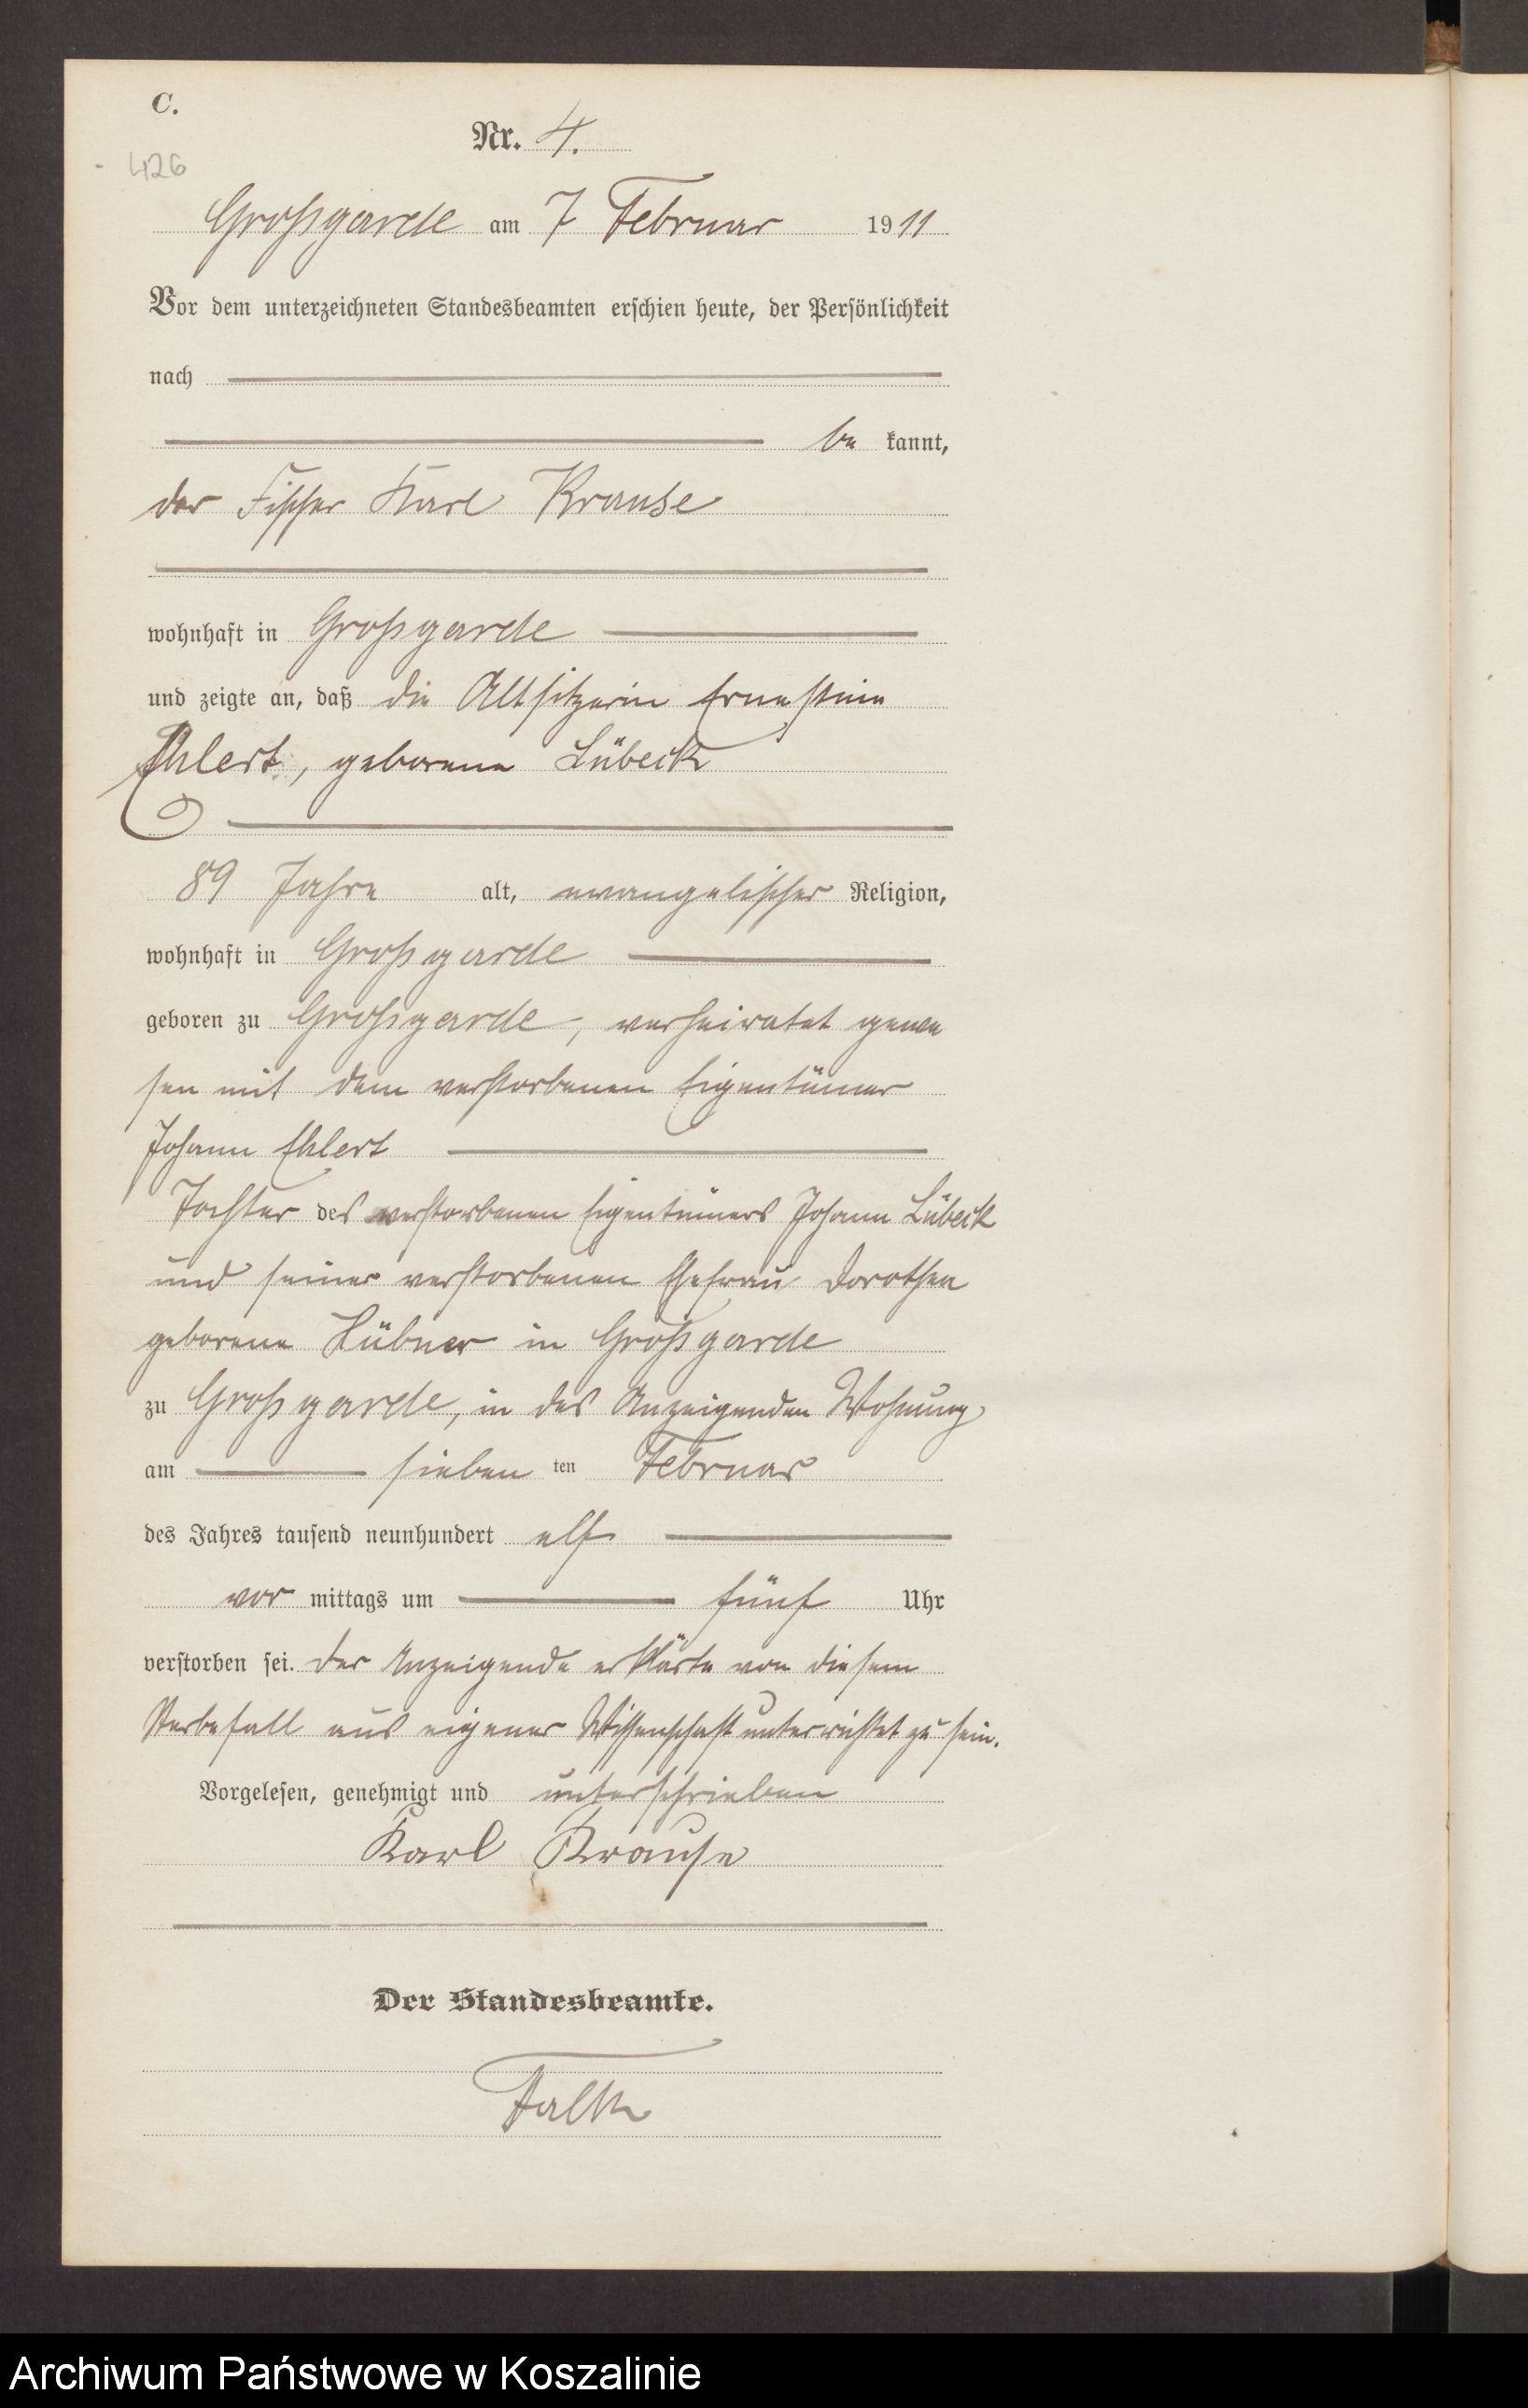 C.
Nr. 4.
- 426
Großgarde am 7 Februar 1911
Vor dem unterzeichneten Standesbeamten erschien heute, der Persönlichkeit
nach
be kannt,
der Fischer Karl Krause
wohnhaft in Großgarde
und zeigte an, daß die Altsitzerin Ernestine
Ehlert, geborene Lübeck
89 Jahre alt, evangelischer Religion,
wohnhaft in Großgarde
geboren zu Großgarde, verheiratet gewe
sen mit dem verstorbenen Eigentümer
Johann Ehlert
Tochter des verstorbenen Eigentümers Johann Lübeck
und seiner verstorbenen Ehefrau Dorothea
geborene Hübner in Großgarde
zu Großgarde, in des Anzeigenden Wohnung
am sieben ten Februar
des Jahres tausend neunhundert elf
vor mittags um fünf Uhr
verstorben sei. Der Anzeigende erklärte von diesem
Sterbefall aus eigener Wissenschaft unterrichtet zu sein.
Vorgelesen, genehmigt und unterschrieben
Karl Krause
Der Standesbeamte.
Falk
Archiwum Państwowe w Koszalinie